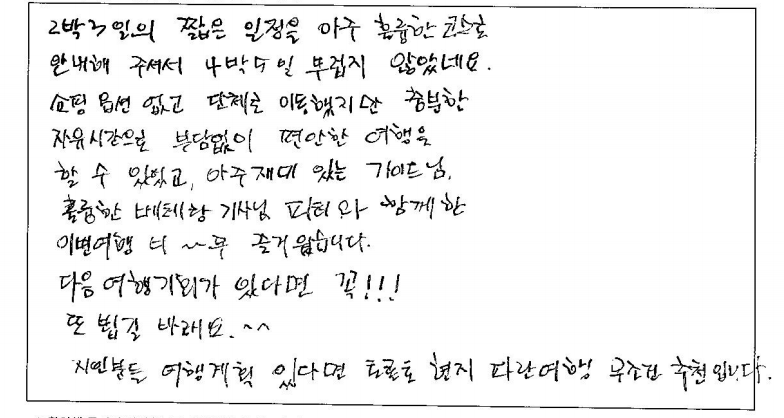 2박3일의 짧은 일정을 아주 훌륭한 코스로
안내해 주셔서 4박5일 부럽지 않았네요.
쇼핑 옵션 없고 단체로 이동했지만 충분한
자유시간으로 부담없이 편안한 여행을
할 수 있었고, 아주 재미 있는 가이드님,
훌륭한 베테랑 기사님 피터와 함께한
이번여행 너~~무 즐거웠습니다.
다음 여행기회가 있다면 꼭!!!
또 뵙길 바래요.^^
지인분들 여행계획 있다면 토론토 현지 파란여행 무조건 추천입니다.